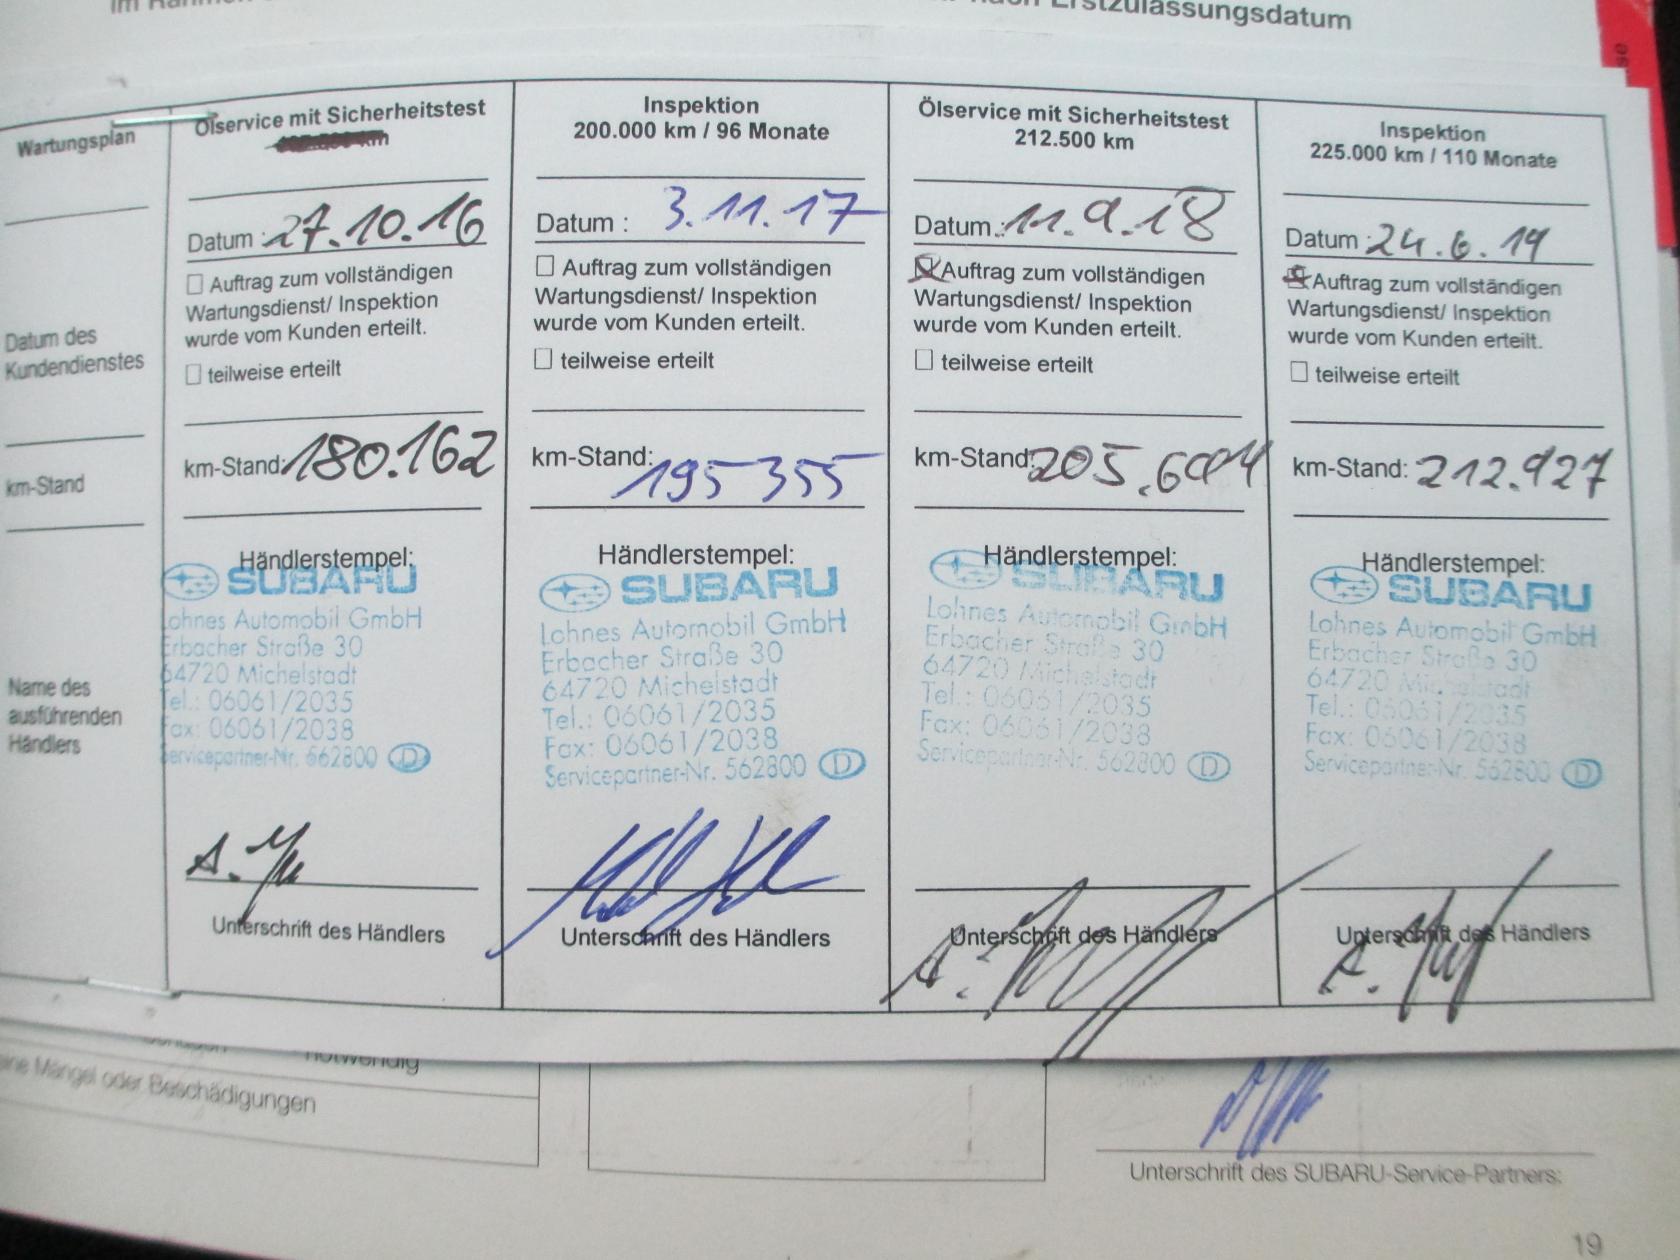 Erstzulassungsdatum
Wartungsplan
Datum des
Kundendienstes
km-Stand
Name des
ausführenden
Händlers
Ölservice mit Sicherheitstest
Datum : 27.10.16
Auftrag zum vollständigen
Wartungsdienst/ Inspektion
wurde vom Kunden erteilt.
teilweise erteilt
km-Stand: 180.162
Händlerstempel:
SUBARU
Lohnes Automobil GmbH
Erbacher Straße 30
64720 Michelstadt
Tel.: 06061/2035
Fax: 06061/2038
Servicepartner-Nr. 562800 D
Unterschrift des Händlers
Inspektion
200.000 km / 96 Monate
Datum : 3.11.17
Auftrag zum vollständigen
Wartungsdienst/ Inspektion
wurde vom Kunden erteilt.
teilweise erteilt
km-Stand: 195 355
Händlerstempel:
SUBARU
Lohnes Automobil GmbH
Erbacher Straße 30
64720 Michelstadt
Tel.: 06061/2035
Fax: 06061/2038
Servicepartner-Nr. 562800 D
Unterschrift des Händlers
Ölservice mit Sicherheitstest
212.500 km
Datum : 11.9.18
Auftrag zum vollständigen
Wartungsdienst/ Inspektion
wurde vom Kunden erteilt.
teilweise erteilt
km-Stand:
Händlerstempel:
SUBARU
Lohnes Automobil GmbH
Erbacher Straße 30
64720 Michelstadt
Tel.: 06061/2035
Fax: 06061/2038
Servicepartner-Nr. 562800 D
Unterschrift des Händlers
Inspektion
225.000 km / 110 Monate
Datum : 24.6.19
Auftrag zum vollständigen
Wartungsdienst/ Inspektion
wurde vom Kunden erteilt.
teilweise erteilt
km-Stand: 212.927
Händlerstempel:
SUBARU
Lohnes Automobil GmbH
Erbacher Straße 30
64720 Michelstadt
Tel.: 06061/2035
Fax: 06061/2038
Servicepartner-Nr. 562800 D
Unterschrift des Händlers
notwendig
Mängel oder Beschädigungen
Unterschrift des SUBARU-Service-Partners:
19